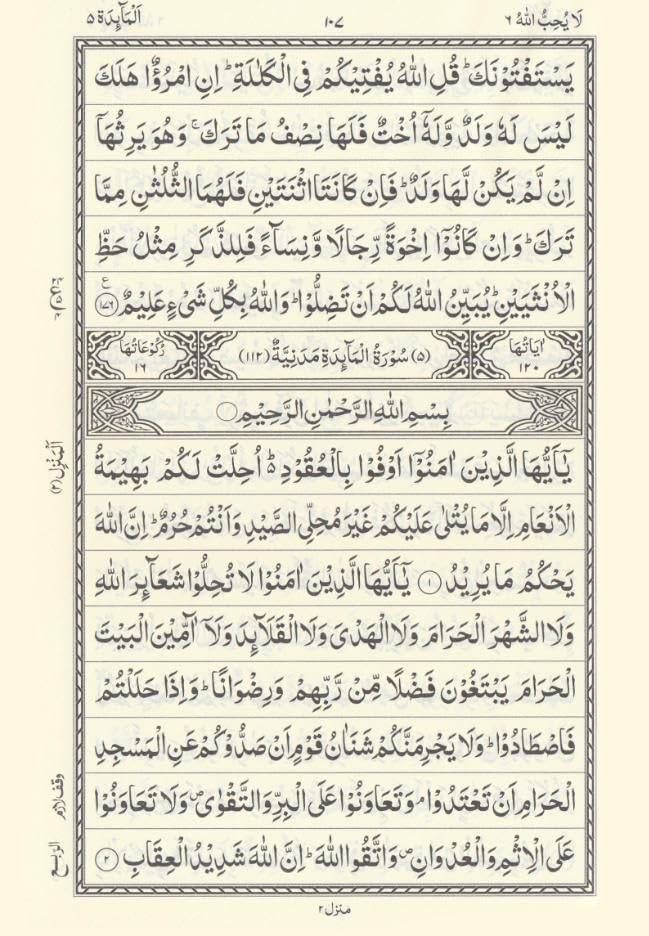 لَا يُحِبُّ اللّٰهُ ٦
١٠٧
اَلْمَآئِدَة ٥
يَسْتَفْتُوْنَكَ ؕ قُلِ اللّٰهُ يُفْتِيْكُمْ فِى الْكَلٰلَةِ ؕ اِنِ امْرُؤٌا هَلَكَ
لَيْسَ لَهٗ وَلَدٌ وَّلَهٗۤ اُخْتٌ فَلَهَا نِصْفُ مَا تَرَكَ ۚ وَهُوَ يَرِثُهَاۤ
اِنْ لَّمْ يَكُنْ لَّهَا وَلَدٌ ؕ فَاِنْ كَانَتَا اثْنَتَيْنِ فَلَهُمَا الثُّلُثٰنِ مِمَّا
تَرَكَ ؕ وَاِنْ كَانُوْۤا اِخْوَةً رِّجَالًا وَّنِسَآءً فَلِلذَّكَرِ مِثْلُ حَظِّ
الْاُنْثَيَيْنِ ؕ يُبَيِّنُ اللّٰهُ لَكُمْ اَنْ تَضِلُّوْا ؕ وَاللّٰهُ بِكُلِّ شَىْءٍ عَلِيْمٌ ﴿١٧٦﴾ ع
اٰيَاتُهَا ١٢٠
(٥) سُوْرَةُ الْمَآئِدَةِ مَدَنِيَّةٌ (١١٢)
رُكُوْعَاتُهَا ١٦
بِسْمِ اللّٰهِ الرَّحْمٰنِ الرَّحِيْمِ
يٰۤاَيُّهَا الَّذِيْنَ اٰمَنُوْۤا اَوْفُوْا بِالْعُقُوْدِ ؕ۬ اُحِلَّتْ لَكُمْ بَهِيْمَةُ
الْاَنْعَامِ اِلَّا مَا يُتْلٰى عَلَيْكُمْ غَيْرَ مُحِلِّى الصَّيْدِ وَاَنْتُمْ حُرُمٌ ؕ اِنَّ اللّٰهَ
يَحْكُمُ مَا يُرِيْدُ ﴿١﴾ يٰۤاَيُّهَا الَّذِيْنَ اٰمَنُوْا لَا تُحِلُّوْا شَعَآئِرَ اللّٰهِ
وَلَا الشَّهْرَ الْحَرَامَ وَلَا الْهَدْىَ وَلَا الْقَلَآئِدَ وَلَاۤ آٰمِّيْنَ الْبَيْتَ
الْحَرَامَ يَبْتَغُوْنَ فَضْلًا مِّنْ رَّبِّهِمْ وَرِضْوَانًا ؕ وَاِذَا حَلَلْتُمْ
فَاصْطَادُوْا ؕ وَلَا يَجْرِمَنَّكُمْ شَنَاٰنُ قَوْمٍ اَنْ صَدُّوْكُمْ عَنِ الْمَسْجِدِ
الْحَرَامِ اَنْ تَعْتَدُوْا ۘ وَتَعَاوَنُوْا عَلَى الْبِرِّ وَالتَّقْوٰى ۪ وَلَا تَعَاوَنُوْا
عَلَى الْاِثْمِ وَالْعُدْوَانِ ۪ وَاتَّقُوا اللّٰهَ ؕ اِنَّ اللّٰهَ شَدِيْدُ الْعِقَابِ ﴿٢﴾
اَلْمَنْزِل (٢)
وقف لازم
الربع
منزل ٢